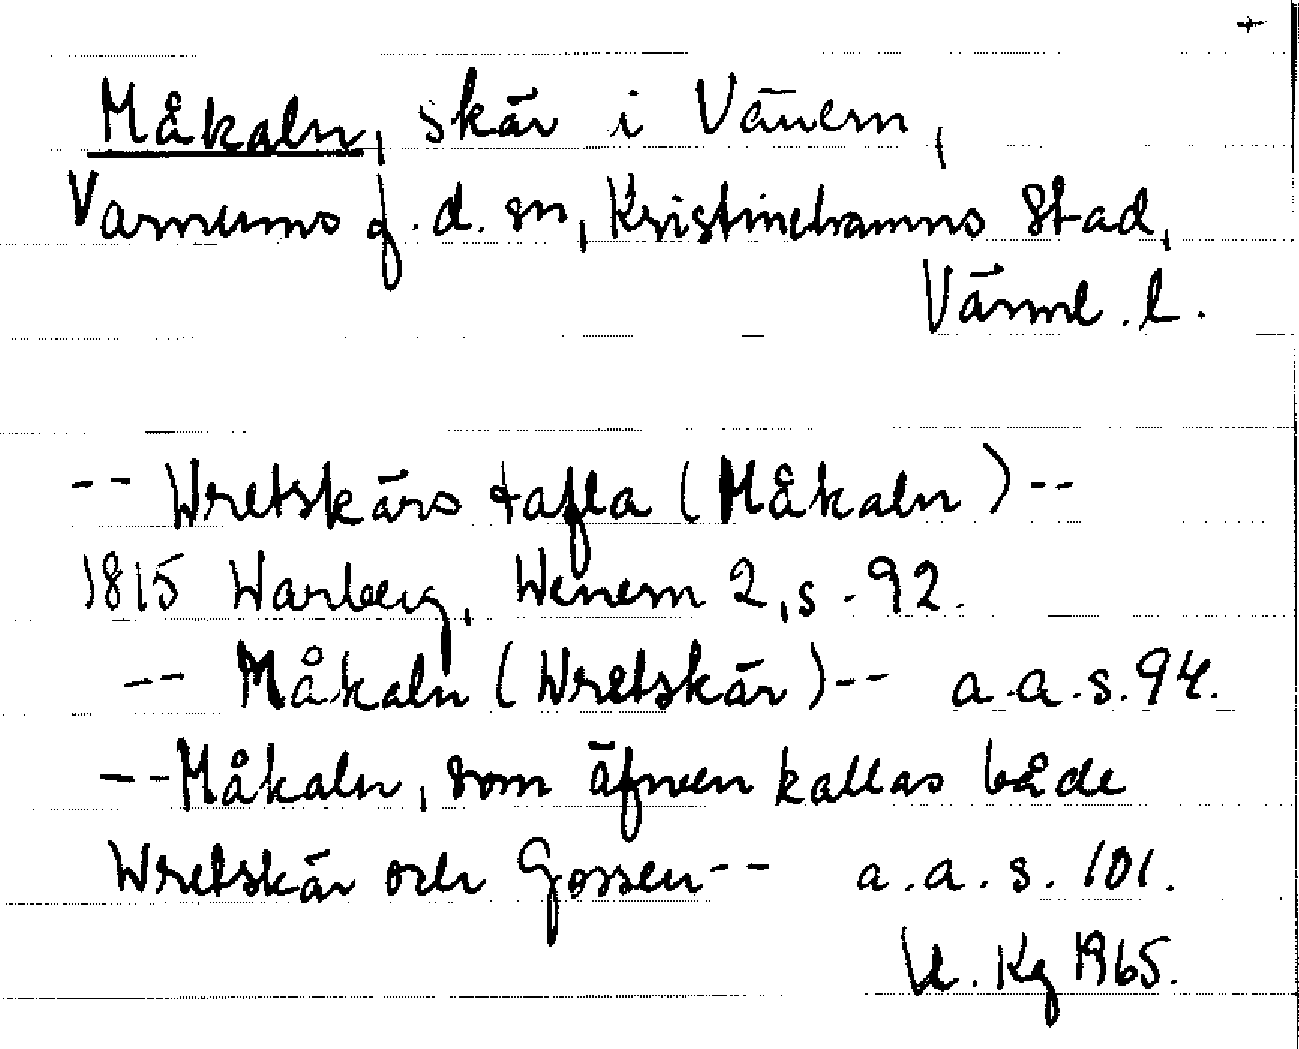 +
Måkaln, skär i Vänern,
Varnums f.d. sn, Kristinehamns stad,
Värml. l.
-- Wretskärs tafla (Måkaln) --
1815 Warberg, Wenern 2, s. 92.
-- Måkaln (Wretskär) -- a.a.s. 94.
-- Måkaln, som äfven kallas både
Wretskär och Gossen -- a.a.s. 101.
Kg 1965.